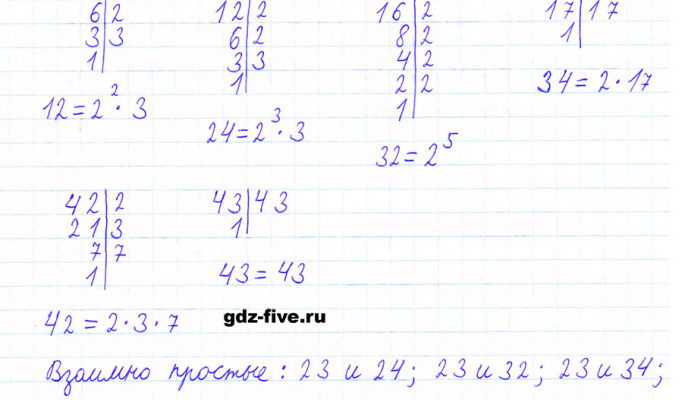 6|2
3|3
1|
12=2²·3
12|2
6|2
3|3
1|
24=2³·3
16|2
8|2
4|2
2|2
1|
32=2⁵
17|17
1|
34=2·17
42|2
21|3
7|7
1|
42=2·3·7
43|43
1|
43=43
gdz-five.ru
Взаимно простые: 23 и 24; 23 и 32; 23 и 34;